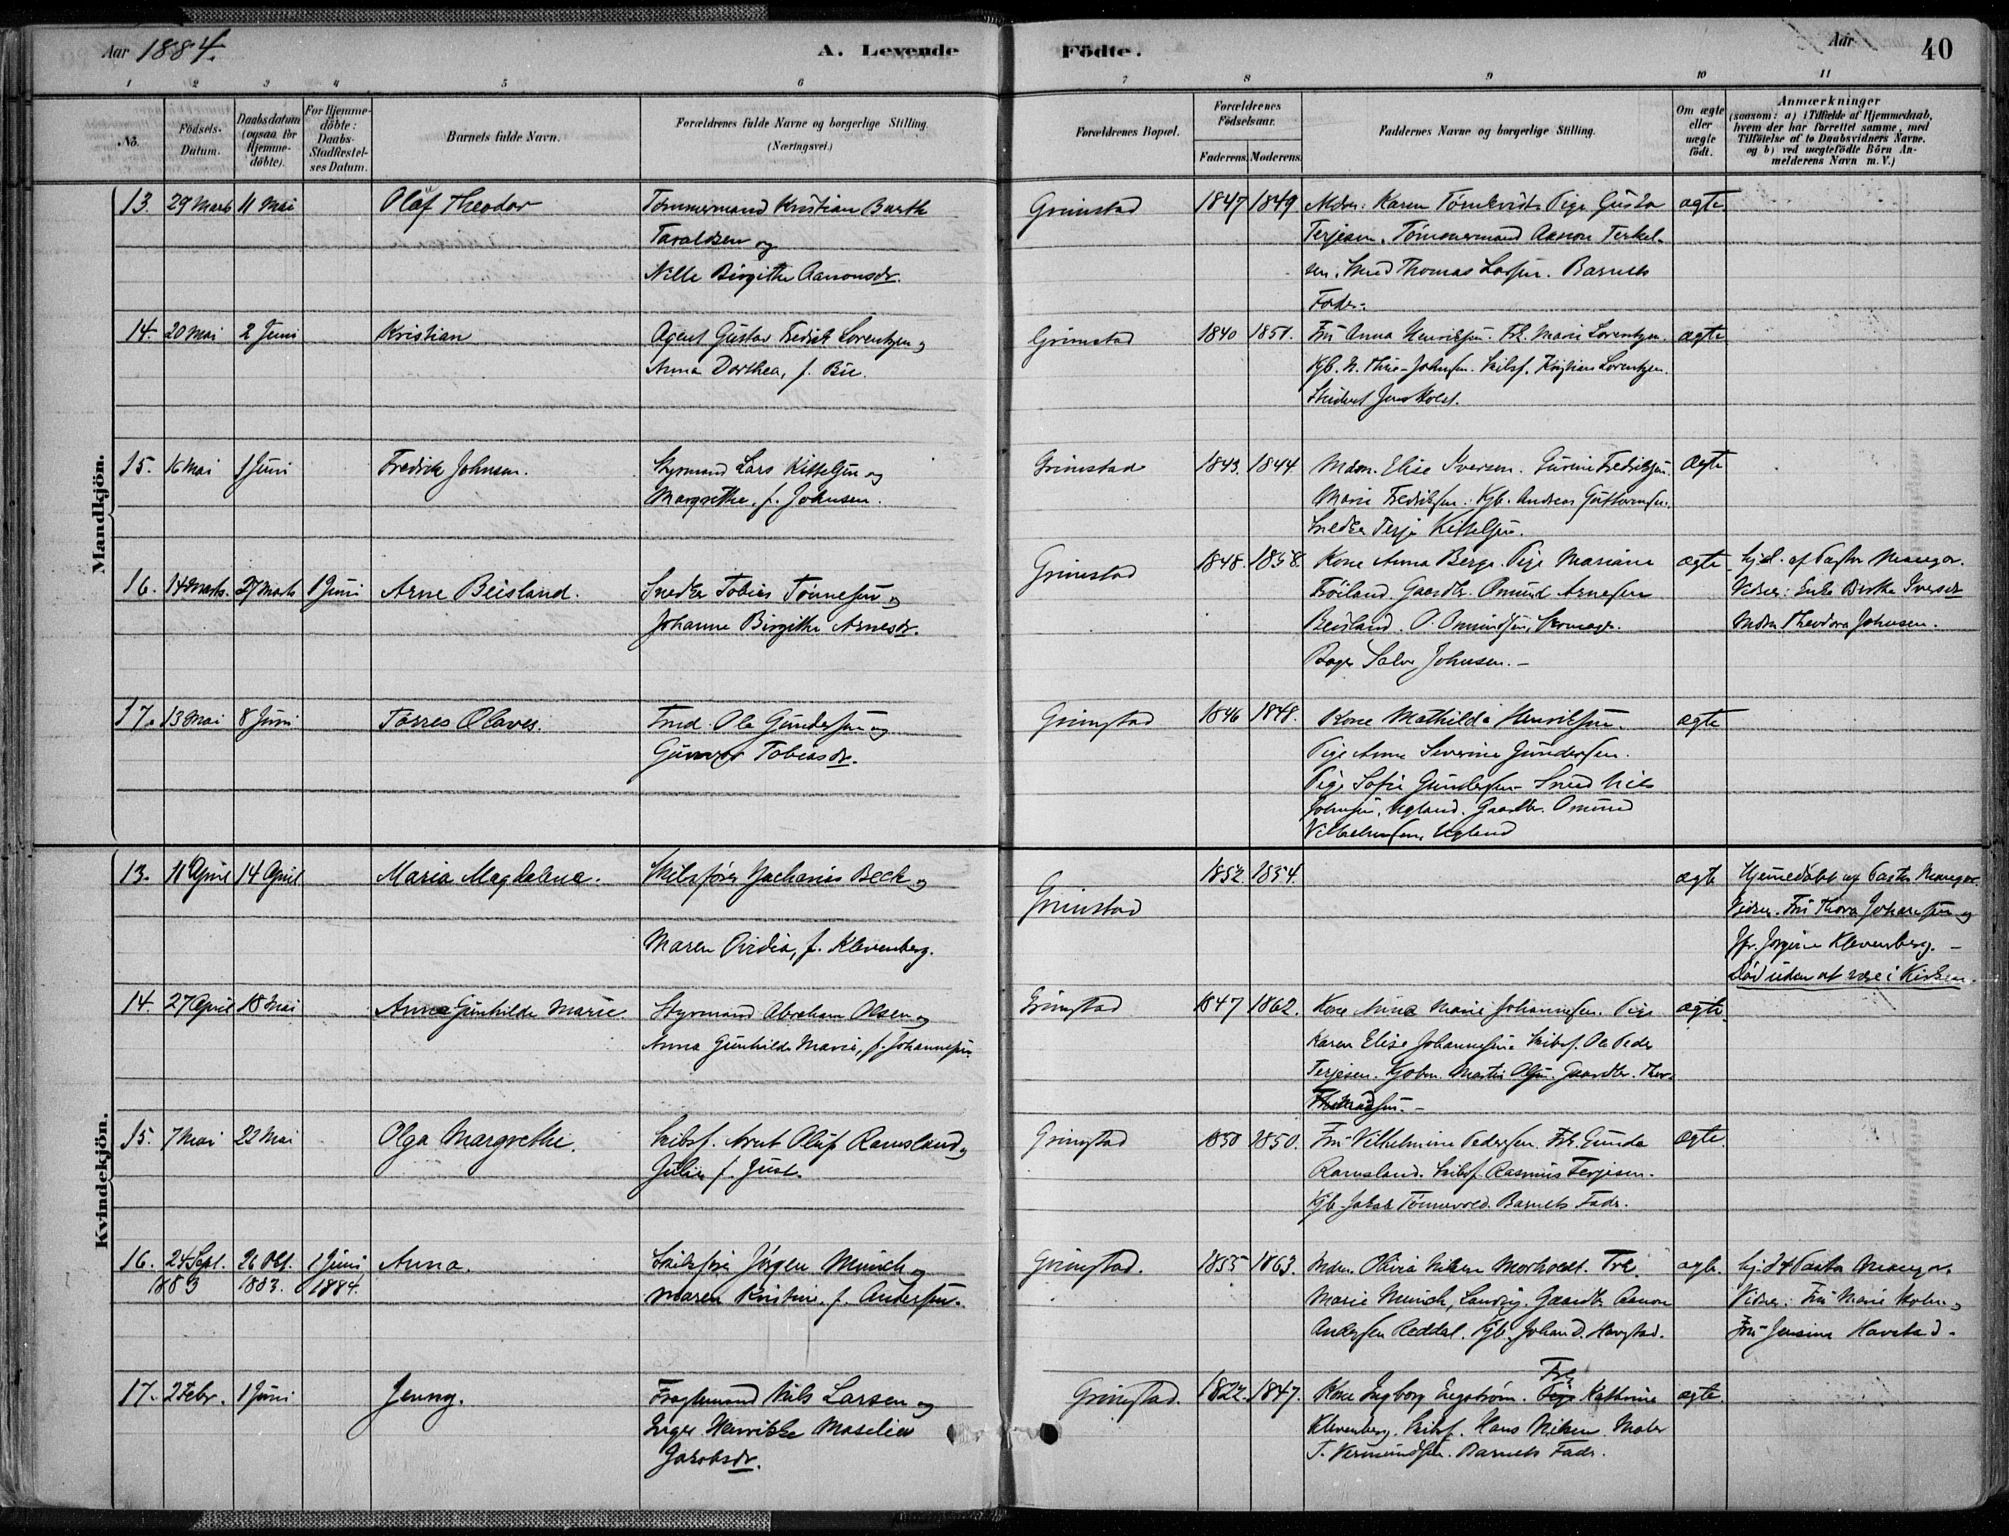 Aar 1884.
A. Levende
Födte.
Aar
40
1 2 3 4 5 6 7 8 9 10 11
No.
Födsels-Datum.
Daabsdatum (ogsaa for Hjemmedöbte).
For Hjemmedöbte: Daabs-Stadfæstelses Datum.
Barnets fulde Navn.
Forældrenes fulde Navne og borgerlige Stilling.
(Næringsvei.)
Forældrenes Bopæl.
Forældrenes Födselsaar.
Faderens. Moderens.
Faddernes Navne og borgerlige Stilling.
Om ægte eller uægte födt.
Anmærkninger
(saasom: a) i Tilfælde af Hjemmedaab,
hvem der har forrettet samme, med
Tilföielse af to Daabsvidners Navne.
og b) ved uægtefödte Börn An-
melderens Navn m. V.)
Mandkjön.
13. 29 Marts 11 Mai Olaf Theodor Tømmermand Kristian Barth Grimstad 1847 1849 Karen Pige Gusta ægte
Taraldsen og Terjesen. Tømmermand Aanon Terkel-
Nille Birgithe Aanonsdr. sen. Smed Thomas Larsen. Barnets
Fader.
14. 20 Mai 2 Juni Kristian Agent Gustav Fredrik Lorentzen og Grimstad 1840 1851. Fru Anna Henriksen. Frk. Marie Lorentzen. ægte
Anna Dorthea, f. Bie Skibsf. Kristian Lorentzen.
Student Jens Holst.
15. 16 Mai 1 Juni Fredrik Johnsen. Styrmand Lars Kittelsen og Grimstad 1843. 1844. Mdm. Elise Iversen. Gurine Fredriksen. ægte
Margrethe, f. Johnsen. Marie Fredriksen. Kjb. Andreas Guttormsen.
Snedker Terje Kittelsen.
16. 14 Marts. 27 Marts 1 Juni Arne Beisland. Snedker Tobias Tønnesen og Grimstad 1848. 1858. Kone Anna Berge. Pige Mariane ægte hjd. af Pastor
Johanne Birgithe Arnesdr. Frøiland. Gaardbr. Omund Arnesen Vidner: Enke Birthe Iversdr
Beisland. O. Omundsen, Mdm Theodora Johnsen.
Bager Salve Johnsen. –
17. 13 Mai 8 Juni Torres Olaves. Tmd. Ole Gundersen og Grimstad 1846 1848. Kone Mathilde Henriksen ægte
Gunvor Tobiasdr. Pige Anne Severine Gundersen.
Pige Sofie Gundersen Smed Nils
Johnsen, Ugland. Gaardbr. Omund
Vilhelmsen, Ugland
Kvindekjön.
13. 11 April 14 April Maria Magdalena. Skibsfører Zacharias Beck og Grimstad 1852. 1854. ægte Hjemmedøbt af Pastor
Vidner. Fru Thora Johansen og
Maren Ovidia, f. Klevenberg. Jfr. Jørgine Klevenberg. –
Død uden at være i Kirken.
14. 27 April 18 Mai Anne Gunhilde Marie. Styrmand Abraham Olsen og Grimstad 1847 1862. Kone Anne Marie Johannesen. Pige ægte.
Anna Gunhilde Marie, f. Johannesen Karen Elise Johannesen Skibsf. Ole Peder
Terjesen. Kjøbm. Martin Olsen. Gaardbr. Thor
15. 7 Mai 22 Mai Olga Margrethe. Skibsf. Arnt Oluf Ramsland og Grimstad 1850 1850. Fru Vilhelmine Pedersen. Frk. Gunda ægte.
Julie f. Just. Ramsland. Skibsf. Rasmus Terjesen.
Kjb. Jakob Tønnevold. Barnets Fader.
16. 24 Sept. 26 Okt. 1 Juni Anna. Skibsfører Jørgen Munch og Grimstad. 1855 1863. Mdm. Olivia Morholt. Frk. ægte. hj. d. af Pastor
1883 1883. 1884. Maren Kristine, f. Andersen. Marie Munch, Landvig. Gaardbr. Aanon Vidner: Fru Marie Holm og
Andersen Reddal. Kjb. Johan D. Havstad. Fru Jensine Havstad.
17. 2 Febr. 1 Juni Jenny. Fragtemand Nils Larsen og Grimstad. 1822. 1847. Kone Ingborg Engstrøm. Frk. Kathrine ægte.
Inger Henrikke Maselia Klevenberg. Skibsf. Hans Maler
Jakobsdr. T. Vermundsen. Barnets Fader.